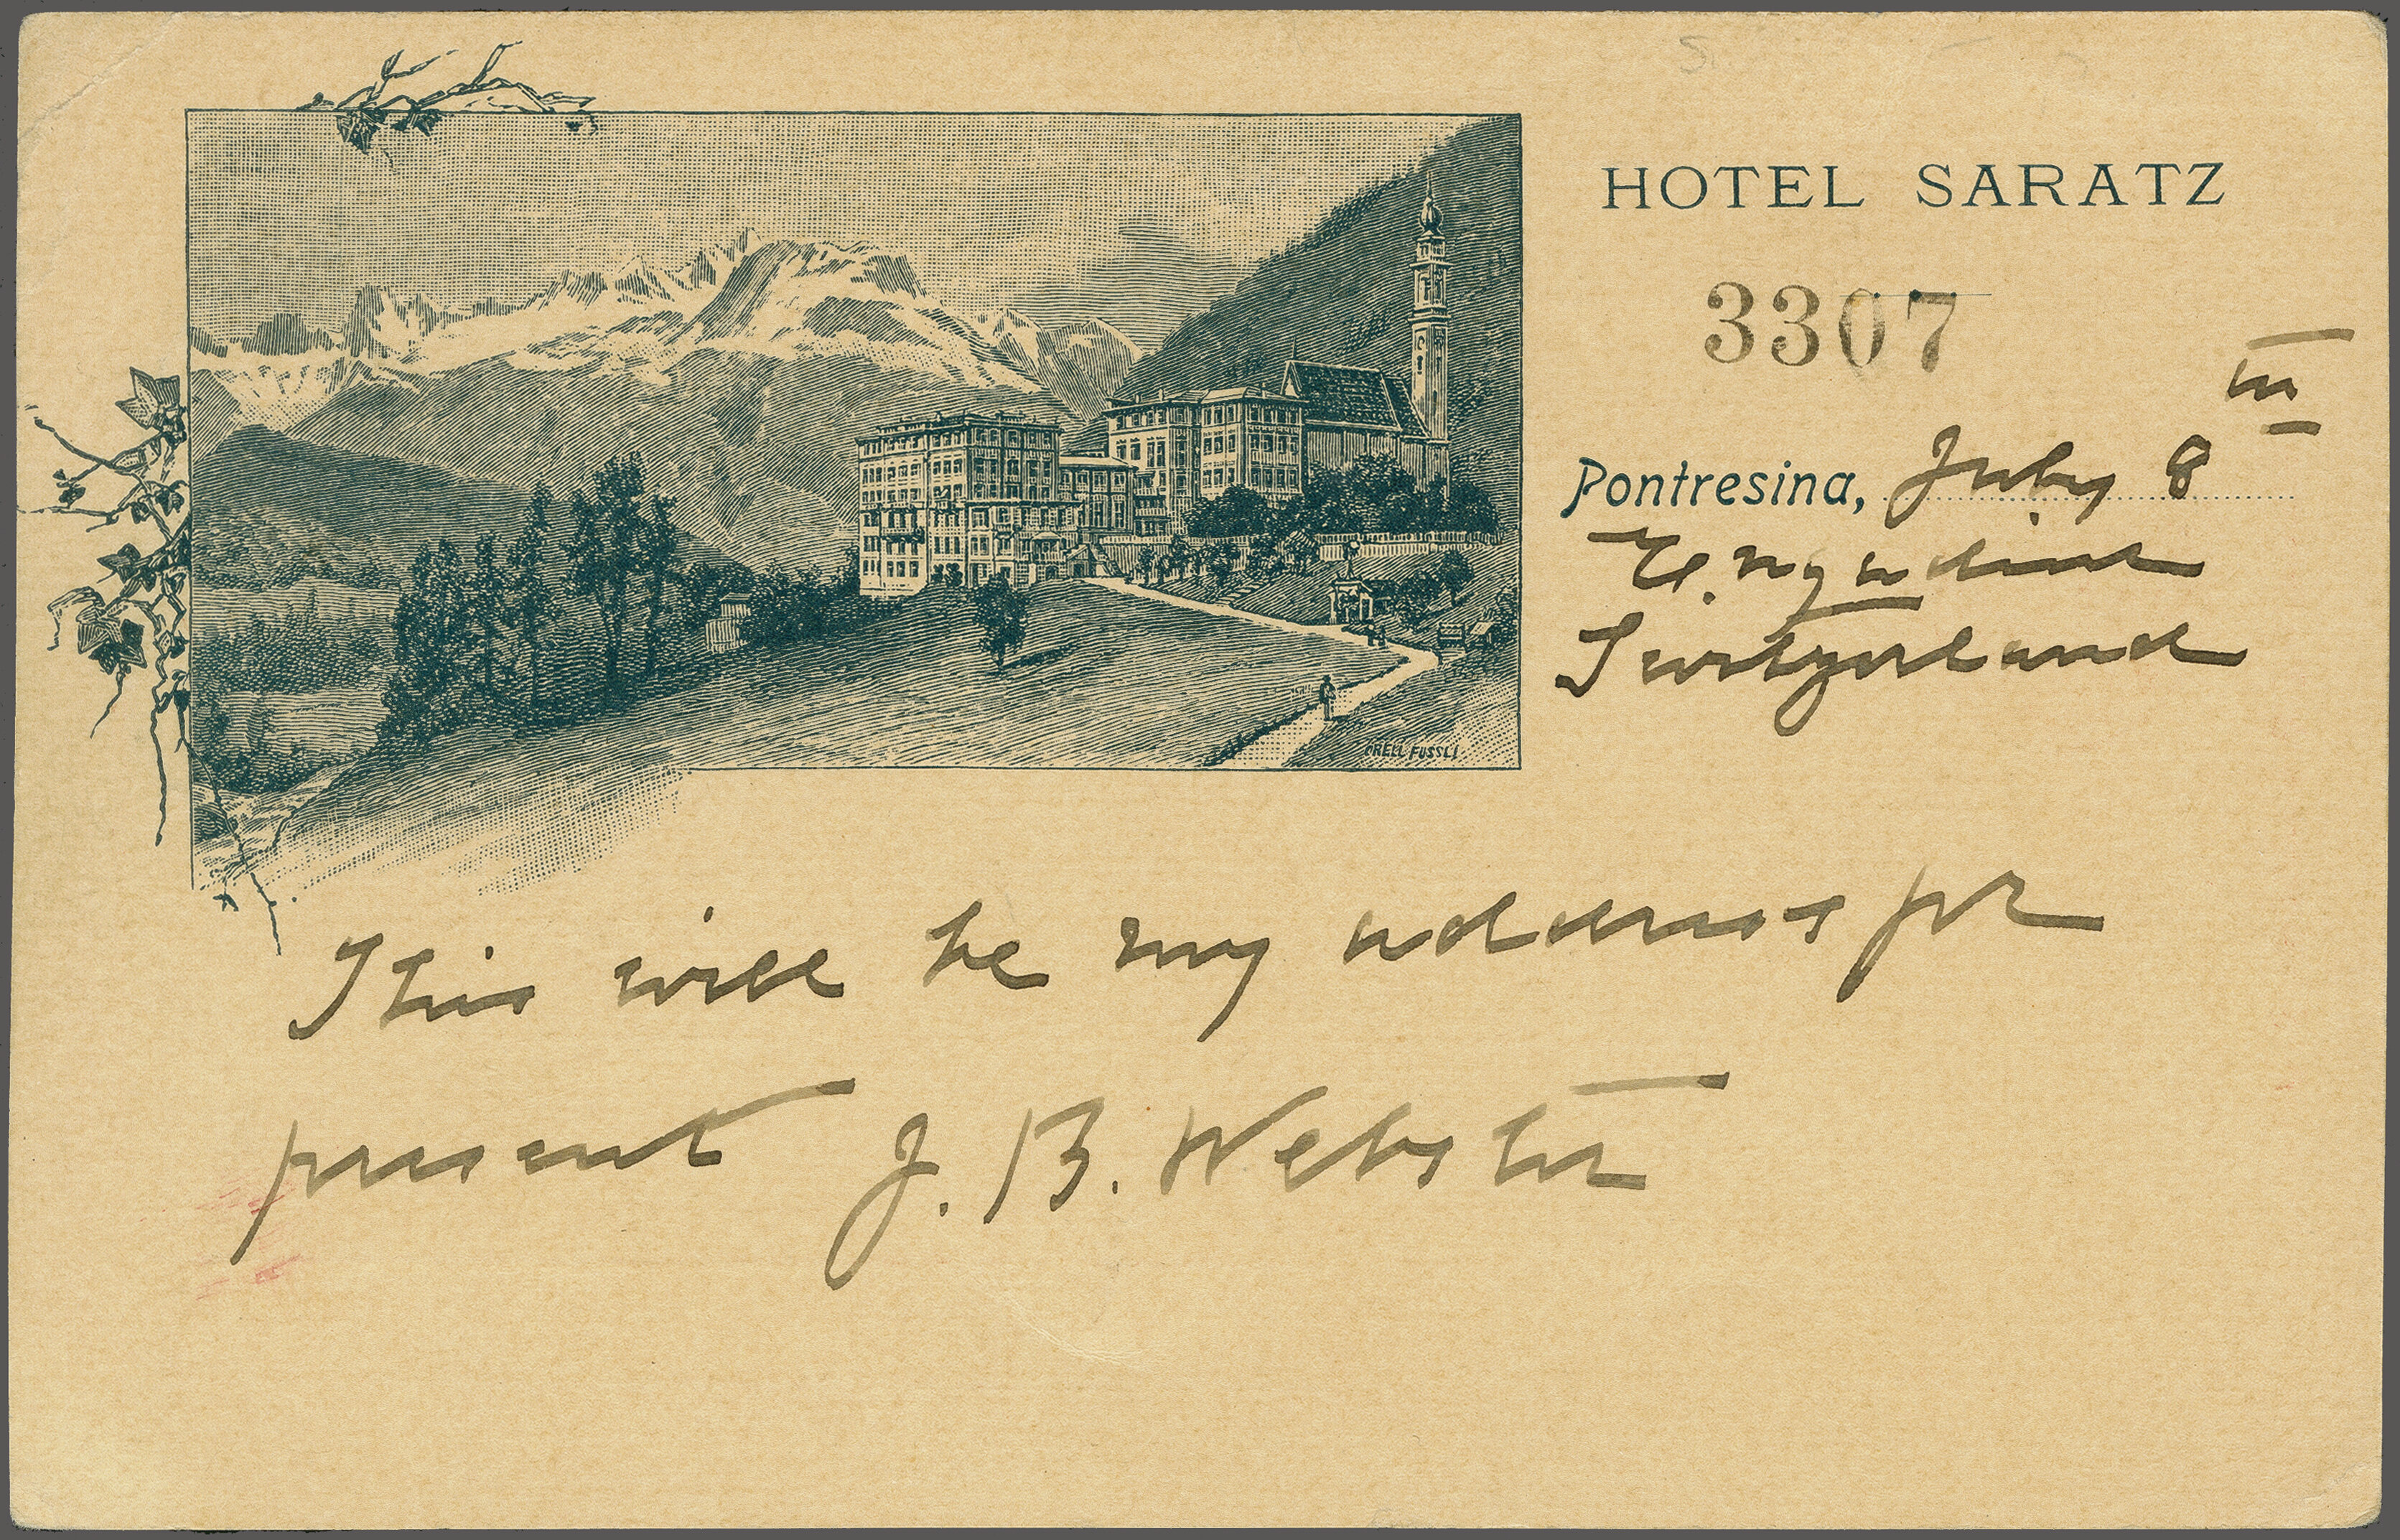 HOTEL SARATZ
3307
Pontresina, July 8th
Engadine
Switzerland
ORELL FUSSLI
This will be my address for
present J. B. Webster